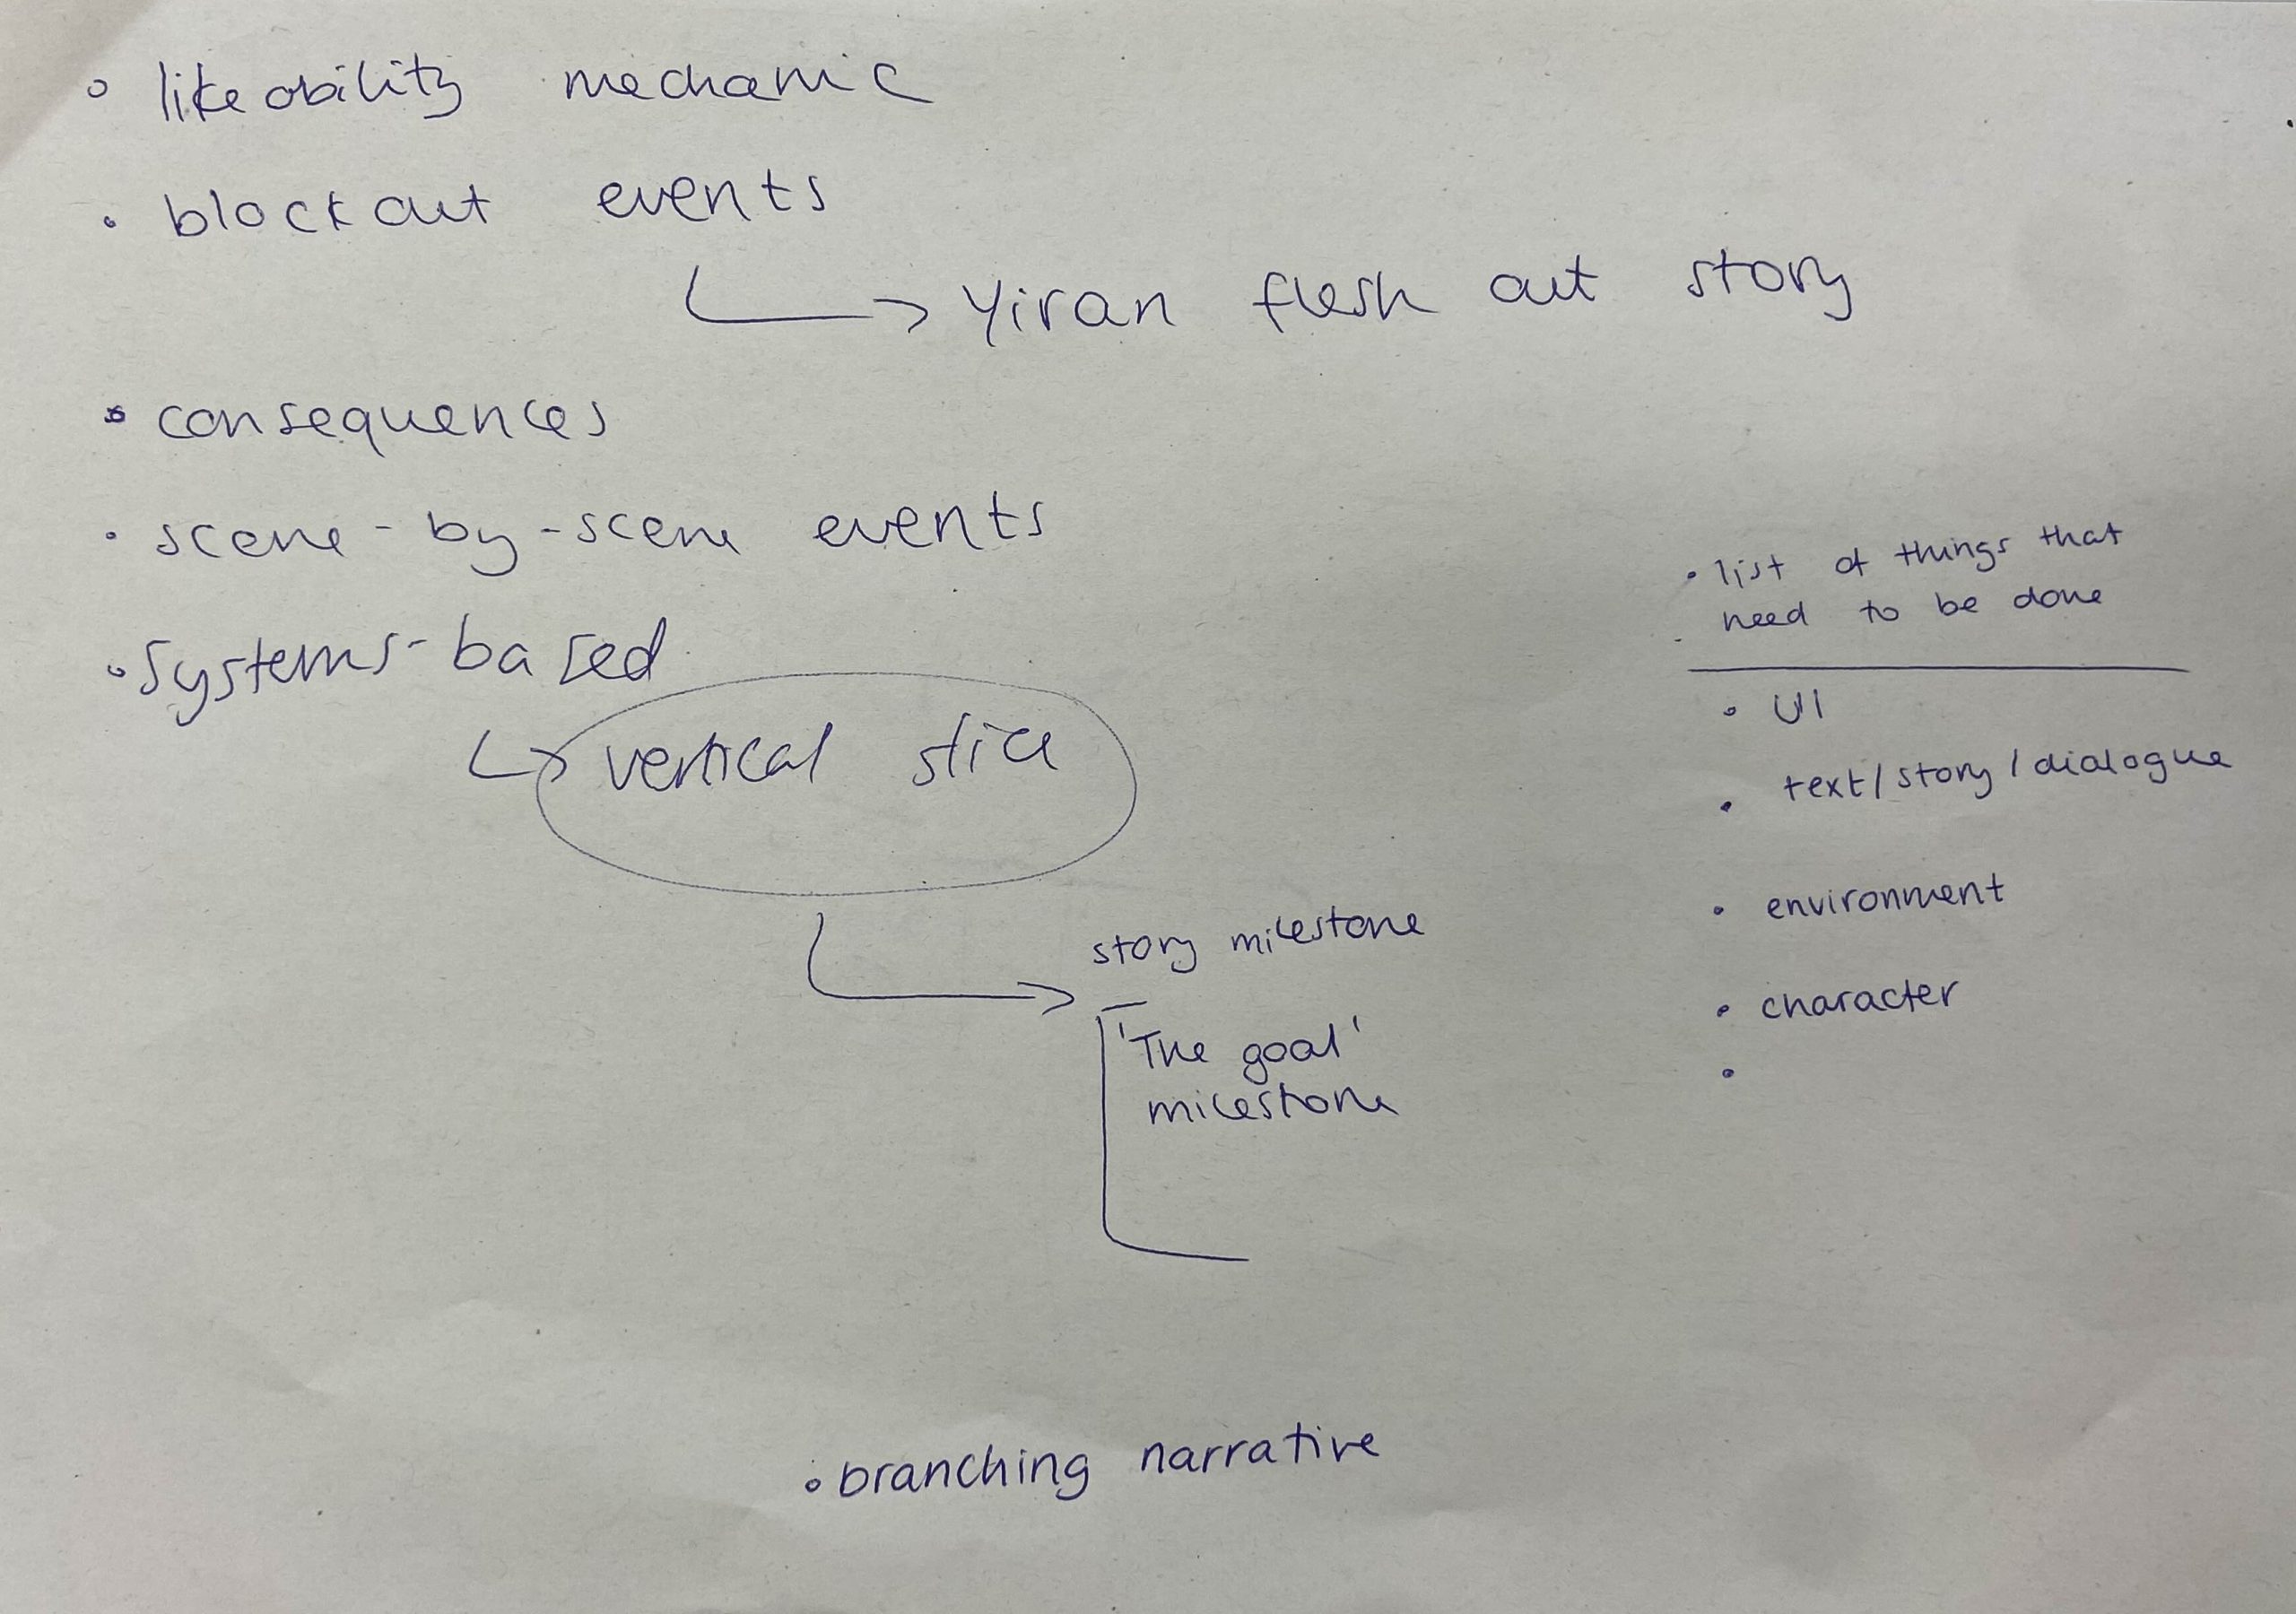 likeability mechanic
blockout events
Yiran flesh out story
consequences
scene-by-scene events
systems-based
vertical slice
story milestone
'The goal'
milestone
branching narrative
list of things that
need to be done
UI
text/story/dialogue
environment
character